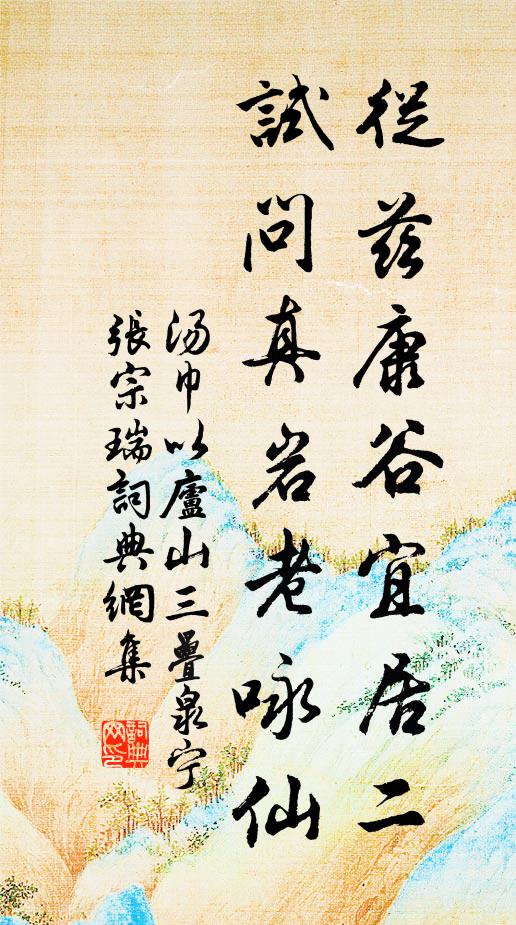 從茲康谷宜居二
試問真岩老咏仙
湯巾以廬山三疊泉宁
張宗瑞詞典網集
詞典網印